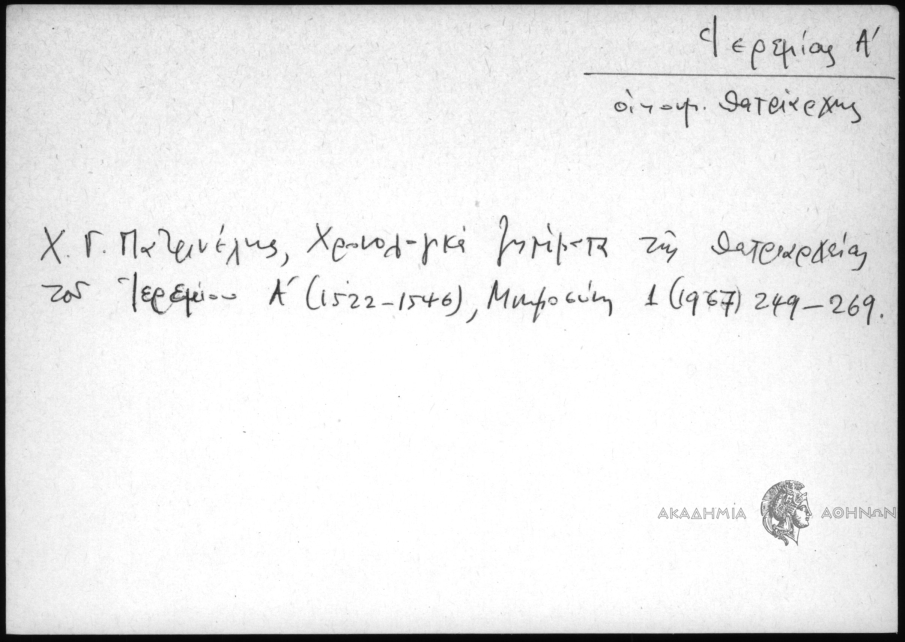 Ἱερεμίας Α΄
οἰκουμ. Πατριάρχης
Χ. Γ. Πατρινέλης, Χρονολογικά ζητήματα τῆς πατριαρχείας
τοῦ Ἱερεμίου Α΄ (1522-1546), Μνημοσύνη 1 (1967) 249-269.
ΑΚΑΔΗΜΙΑ ΑΘΗΝΩΝ